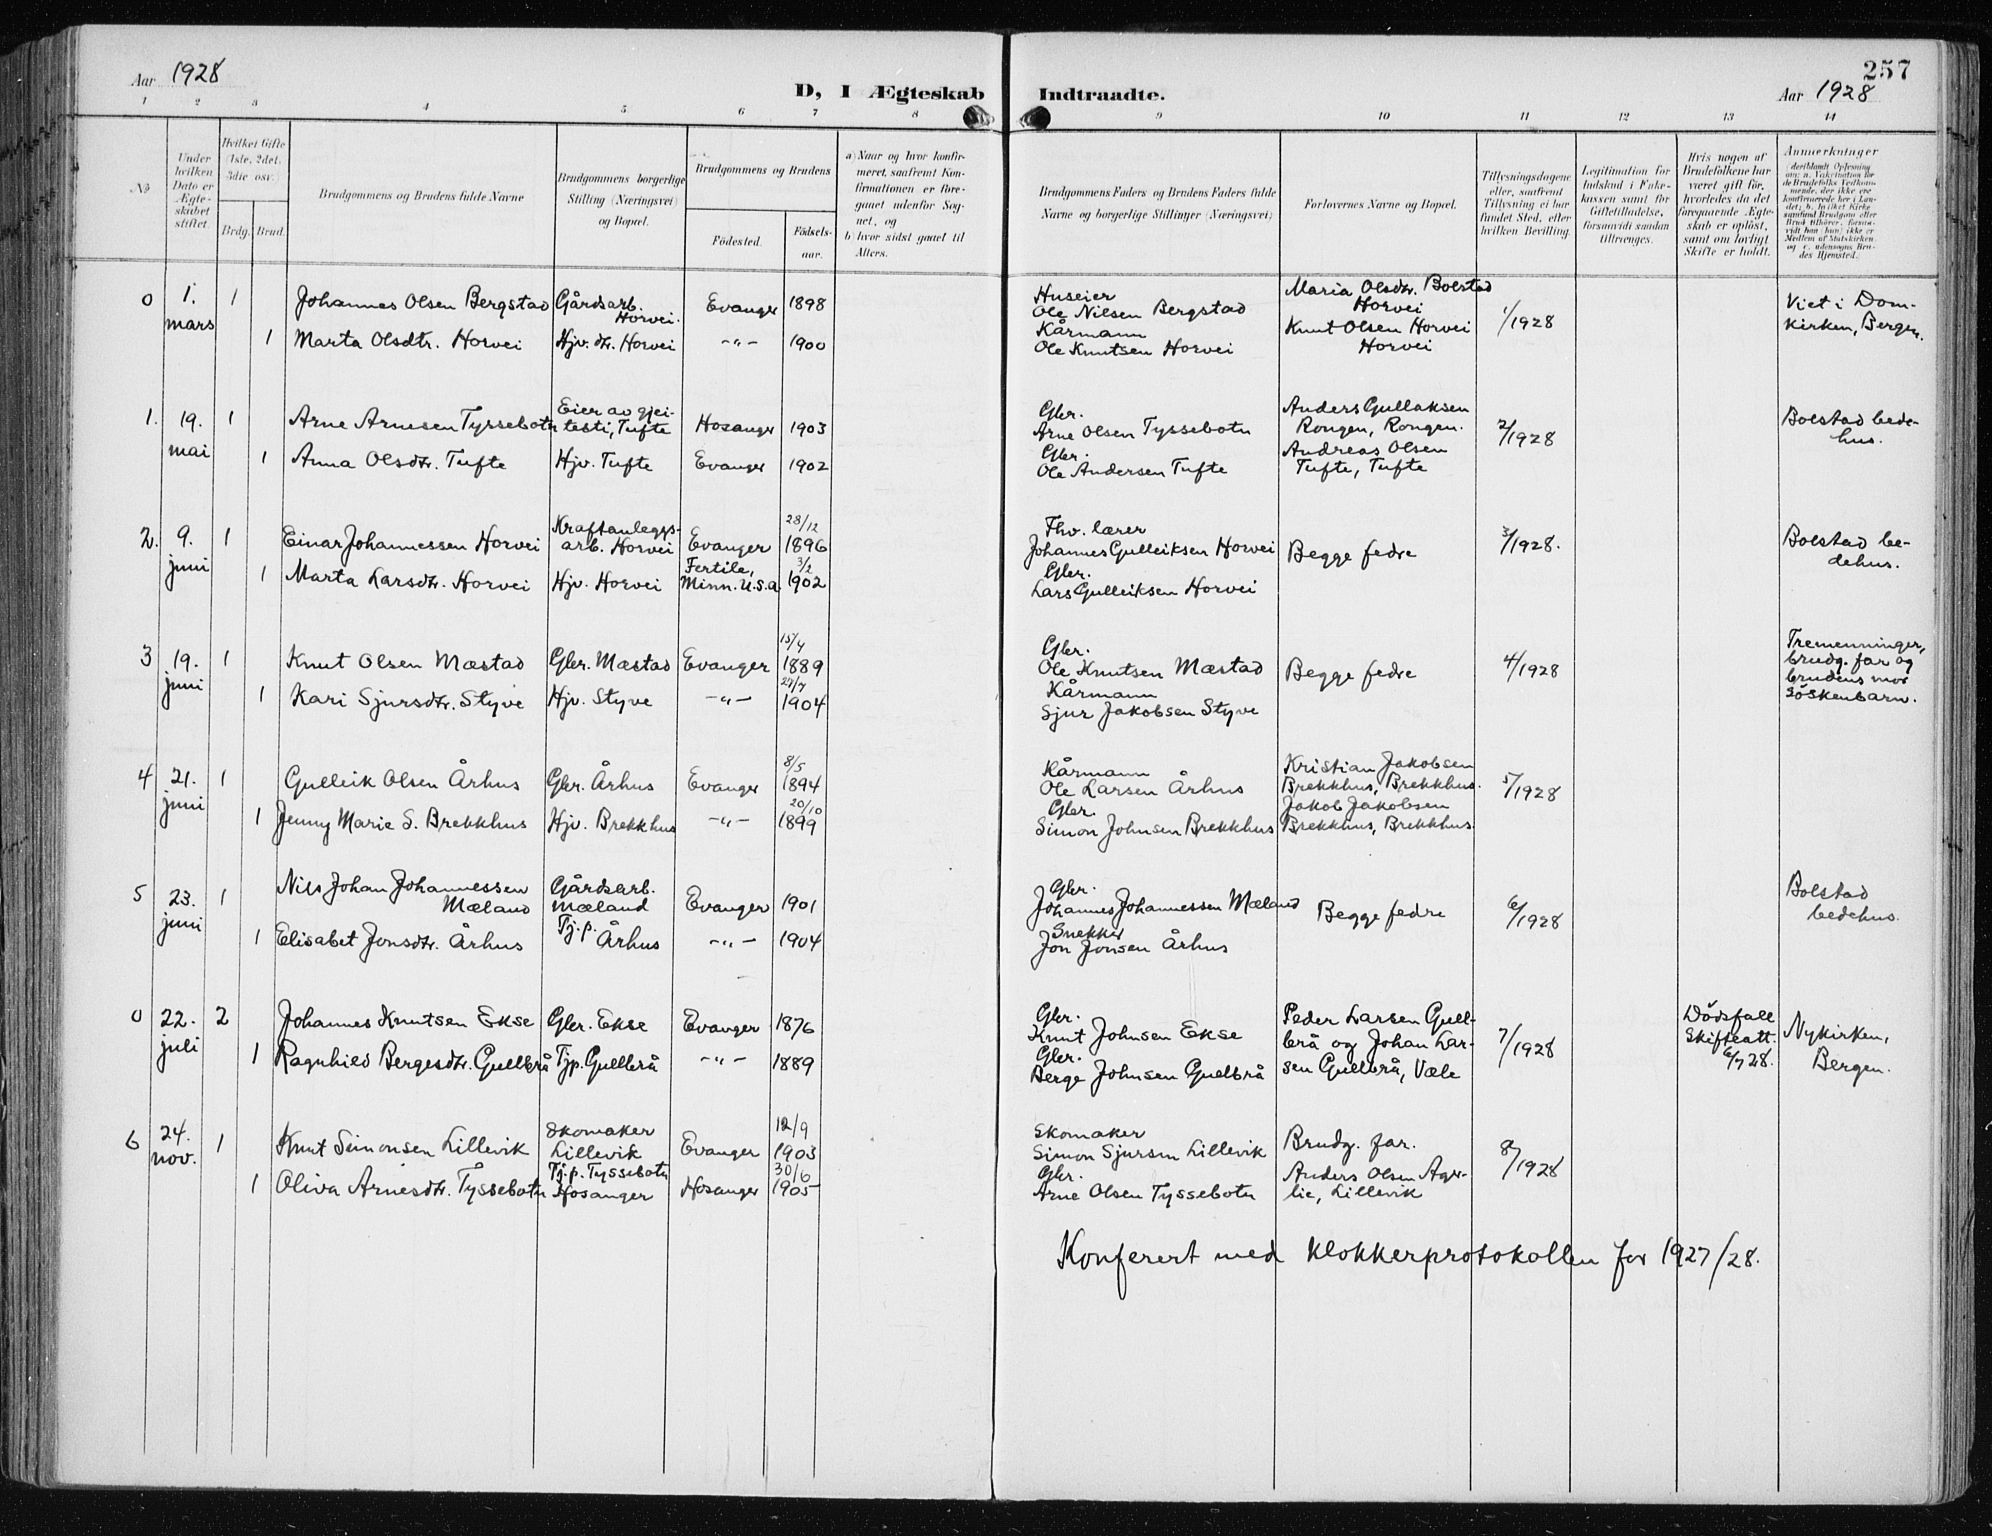 Aar 1928
D, I Ægteskab Indtraadte.
257
Aar 1928
1 2 3 4 5 6 7 8 9 10 11 12 13 14
No
Under hvilken Dato er Ægteskabet stiftet.
Hvilket Gifte (1ste, 2det, 3die osv.)
Brdg. Brud.
Brudgommens og Brudens fulde Navne
Brudgommens borgerlige Stilling (Næringsvei) og Bopæl.
Brudgommens og Brudens
Fødested.
Fødselsaar.
a) Naar og hvor konfirmeret, saafremt Konfirmationen er foregaaet udenfor Sognet, og
b) hvor sidst gaaet til Alters.
Brudgommens Faders og Brudens Faders fulde Navne og borgerlige Stillinger (Næringsvei)
Forlovernes Navne og Bopæl.
Tillysningsdagene eller, saafremt Tillysning ei har fundet Sted, efter hvilken Bevilling.
Legitimation for Indskud i Enkekassen samt for Giftetilladelse, forsaavidt saadan tiltrænges.
Hvis nogen af Brudefolkene har været gift før, hvorledes da det foregaaende Ægteskab er opløst, samt om lovligt Skifte er holdt.
Anmerkninger
0 1. mars 1 Johannes Olsen Bergstad Gårdsarb. Horvei. Evanger 1898
Huseier
Ole Nilsen Bergstad
Maria Olsdtr. Bolstad
Horvei
1/1928
Viet i Domkirken, Bergen.
1 Marta Olsdtr. Horvei Hjv. dtr. Horvei -"- 1900
Kårmann
Ole Knutsen Horvei
Knut Olsen Horvei
Horvei
1. 19. mai 1 Arne Arnesen Tyssebotn Eier av gjeitesti, Tufte Hosanger 1903
Gbr.
Arne Olsen Tyssebotn
Anders Gullaksen
Rongen, Rongen.
2/1928
Bolstad bedehus.
1 Anna Olsdtr. Tufte Hjv. Tufte Evanger 1902
Gbr.
Ole Andersen Tufte
Andreas Olsen
Tufte, Tufte
2. 9. juni 1 Einar Johannessen Horvei Kraftanleggsarb. Horvei Evanger 28/12 1896
Fhv. lærer
Johannes Gulleiksen Horvei
Begge fedre
3/1928.
Bolstad bedehus.
1 Marta Larsdtr. Horvei Hjv. Horvei Fertile, Minn. U.S.a 3/2 1902
Gbr.
Lars Gulleiksen Horvei
3 19. juni 1 Knut Olsen Mæstad Gbr. Mæstad Evanger 15/4 1889
Gbr.
Ole Knutsen Mæstad
Begge fedre
4/1928
Tremenninger, brudg. far og brudens mor söskenbarn.
1 Kari Sjursdtr. Styve Hjv. Styve -"- 29/7 1904
Kårmann
Sjur Jakobsen Styve
4 21. juni 1 Gulleik Olsen Århus Gbr. Århus Evanger 8/5 1894
Kårmann
Ole Larsen Århus
Kristian Jakobsen
Brekkhus, Brekkhus.
5/1928
1 Jenny Marie S. Brekkhus Hjv. Brekkhus -"- 20/10 1899
Gbr.
Simon Johnsen Brekkhus
Jakob Jakobsen
Brekkhus, Brekkhus.
5 23. juni 1 Nils Johan Johannessen Mæland Gårdsarb. Mæland Evanger 1901
Gbr.
Johannes Johannessen Mæland
Begge fedre
6/1928
Bolstad bedehus.
1 Elisabet Jonsdtr. Århus Tj.p. Århus -"- 1904
Snekker
Jon Jonsen Århus
0 22. juli 2 Johannes Knutsen Ekse Gbr. Ekse Evanger 1876
Gbr.
Knut Johnsen Ekse
Peder Larsen Gullbrå og Johan Larsen Gullbrå, Væle
7/1928
Dödsfall
Skifteatt.
6/7 28.
Nykirken, Bergen.
1 Ragnhild Bergesdtr. Gullbrå Tjp. Gullbrå -"- 1889
Gbr.
Berge Johnsen Gullbrå
6 24. nov. 1 Knut Simonsen Lillevik Skomaker Lillevik Evanger 12/9 1903
Skomaker
Simon Sjursen Lillevik
Brudg. far.
8/1928
1 Oliva Arnesdtr. Tyssebotn Tj.p. Tyssebotn Hosanger Hosanger 30/6 1905
Gbr.
Arne Olsen Tyssebotn
Anders Olsen Agerlie, Lillevik
Konferert med klokkerprotokollen for 1927/28.